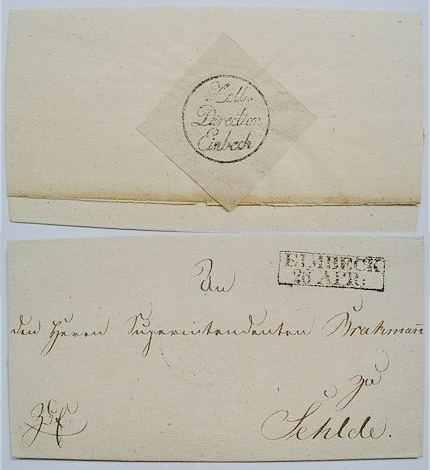 Zoll-
Direction
Einbeck
EIMBECK
26 APR.
An
den Herrn Superintendenten Brakmann
zu
Sehlde.